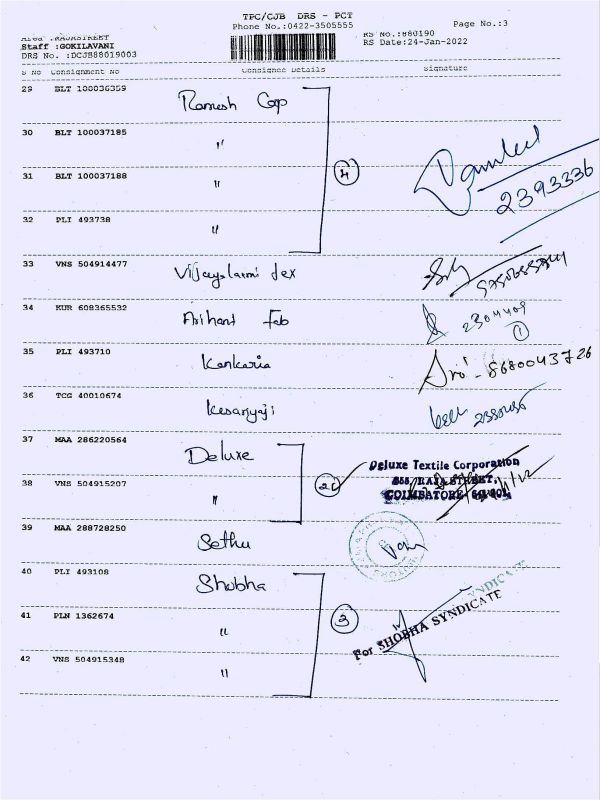 TPC/CJB DRS - PCT
Phone No.:0422-3505555 Page No.:3
Area :RAJASTREET RS No.:880190
Staff :GOKILAVANI RS Date:24-Jan-2022
DRS No. :DCJB88019003
S No Consignment No Consignee Details Signature
29 BLT 100036359 Ramesh Corp
30 BLT 100037185 "
31 BLT 100037188 " 4
2393336
32 PLI 493738 "
33 VNS 504914477 Vijayalaxmi Tex
34 KUR 608365532 Arihant Fab 2304409
1
35 PLI 493710 Kankaria 8680043726
36 TCG 40010674 Kesariyaji
37 MAA 286220564 Deluxe
Deluxe Textile Corporation
38 VNS 504915207 " 2 RAJA STREET,
COIMBATORE
39 MAA 288728250 Sethu
40 PLI 493108 Shobha
41 PLN 1362674 " 3 For SHOBHA SYNDICATE
42 VNS 504915348 "